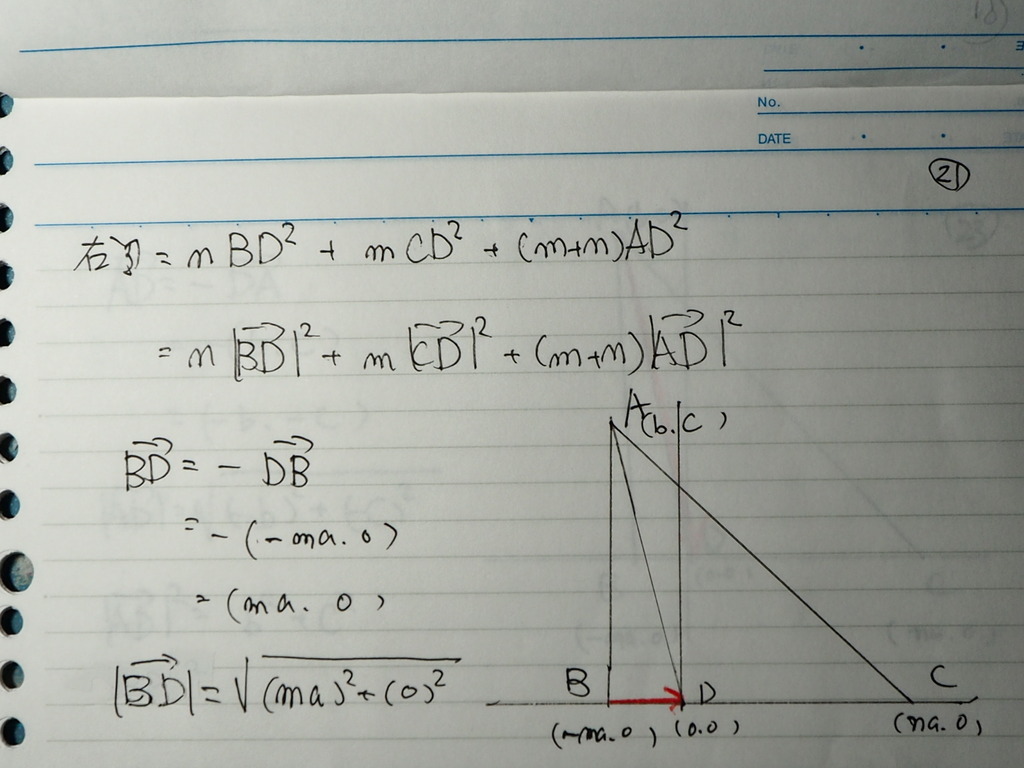 No.
DATE
21
右辺 = nBD² + mCD² + (m+n)AD²
= n|BD|² + m|CD|² + (m+n)|AD|²
A(b. c)
BD = - DB
= - (-ma. 0)
= (ma. 0)
|BD| = √(ma)² + (0)²
B
D
C
(-ma. 0)
(0.0)
(na. 0)